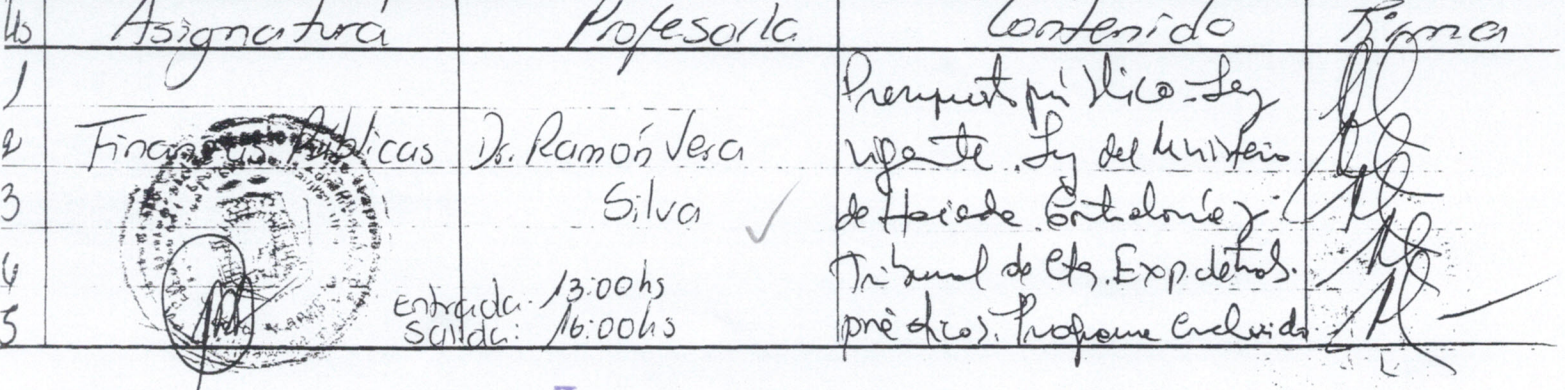 Hs Asignatura Profesor/a Contenido Firma
1 Presupuesto público. Ley
2 Finanzas Públicas Dr. Ramón Vera vigente. Ley del Ministerio
3 Silva de Hacienda. Contraloría y
4 Entrada: 13:00hs Tribunal de Ctas. Exp. de trab.
5 Salida: 16:00hs prácticos. Programa concluido